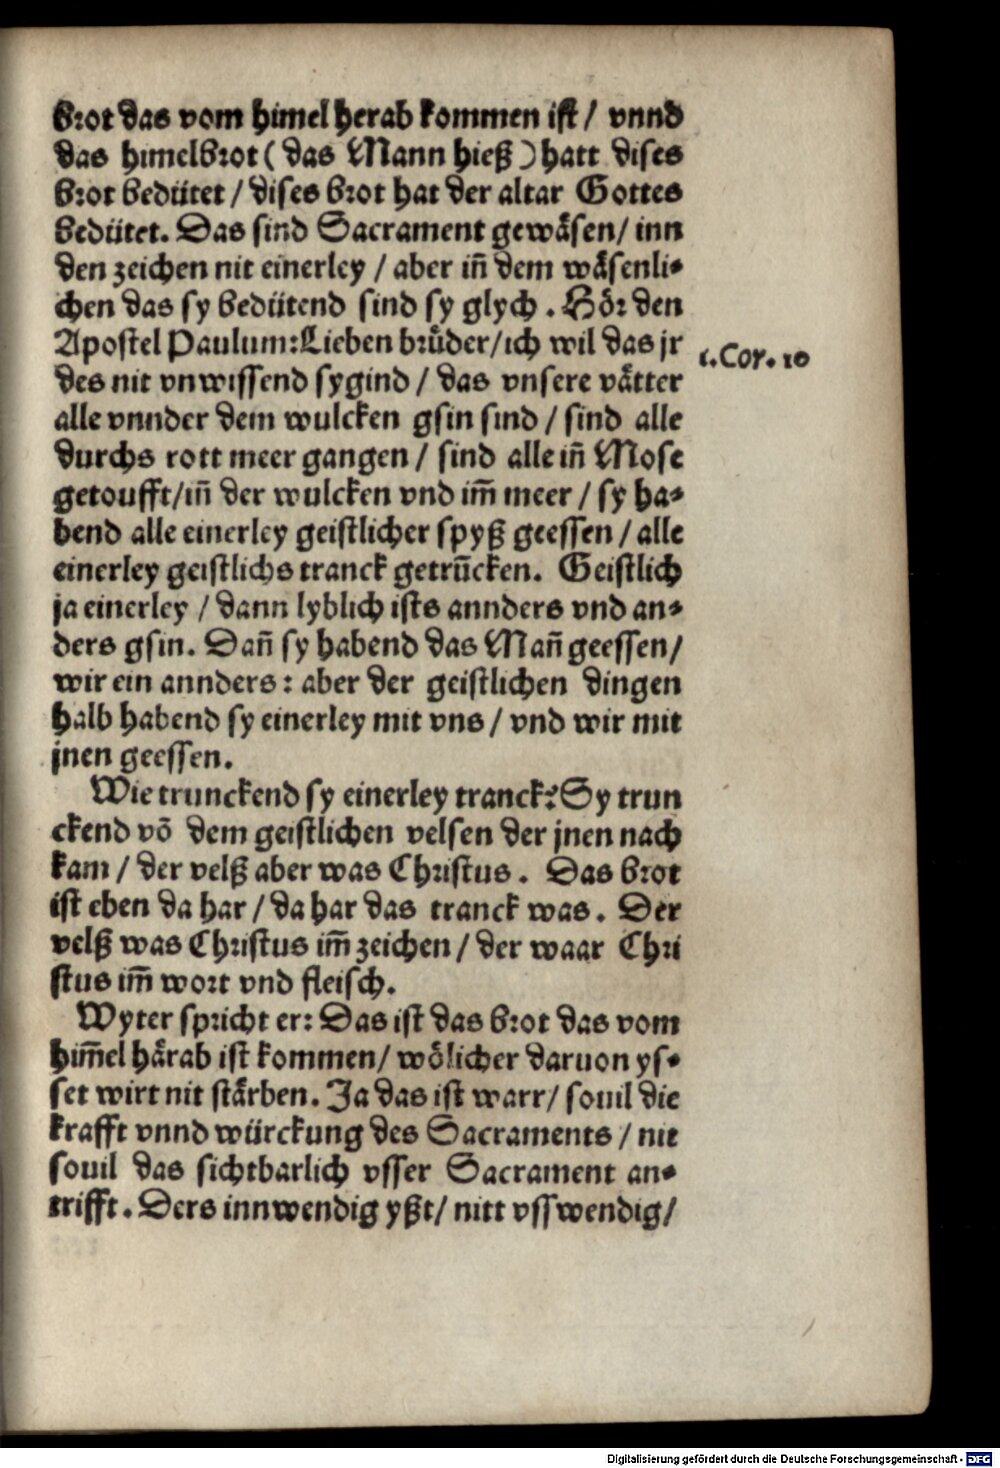 brot das vom himel herab kommen ist / vnnd
das himelbrot ( das Mann hieß ) hatt dises
brot bedütet / dises brot hat der altar Gottes
bedütet. Das sind Sacrament gewåsen / inn
den zeichen nit einerley / aber iñ dem wåsenli⸗
chen das sy bedütend sind sy glych . Hör den
Apostel Paulum: Lieben brůder / ich wil das jr
des nit vnwissend sygind / das vnsere våtter
alle vnnder dem wulcken gsin sind / sind alle
durchs rott meer gangen / sind alle iñ Mose
getoufft / iñ der wulcken vnd im̃ meer / sy ha⸗
bend alle einerley geistlicher spyß geessen / alle
einerley geistlichs tranck getrũcken. Geistlich
ja einerley / dann lyblich ists annders vnd an⸗
ders gsin. Dañ sy habend das Mañ geessen /
wir ein annders : aber der geistlichen dingen
halb habend sy einerley mit vns / vnd wir mit
jnen geessen.
Wie trunckend sy einerley tranck? Sy trun
ckend võ dem geistlichen velsen der jnen nach
kam / der velß aber was Christus . Das brot
ist eben da har / da har das tranck was . Der
velß was Christus im̃ zeichen / der waar Chri
stus im̃ wort vnd fleisch.
Wyter spricht er: Das ist das brot das vom
him̃el hårab ist kommen / wölicher daruon ys⸗
set wirt nit stårben. Ja das ist warr / souil die
krafft vnnd würckung des Sacraments / nit
souil das sichtbarlich vsser Sacrament an⸗
trifft. Ders innwendig yßt / nitt vsswendig /
1. Cor. 10
Digitalisierung gefördert durch die Deutsche Forschungsgemeinschaft - DFG